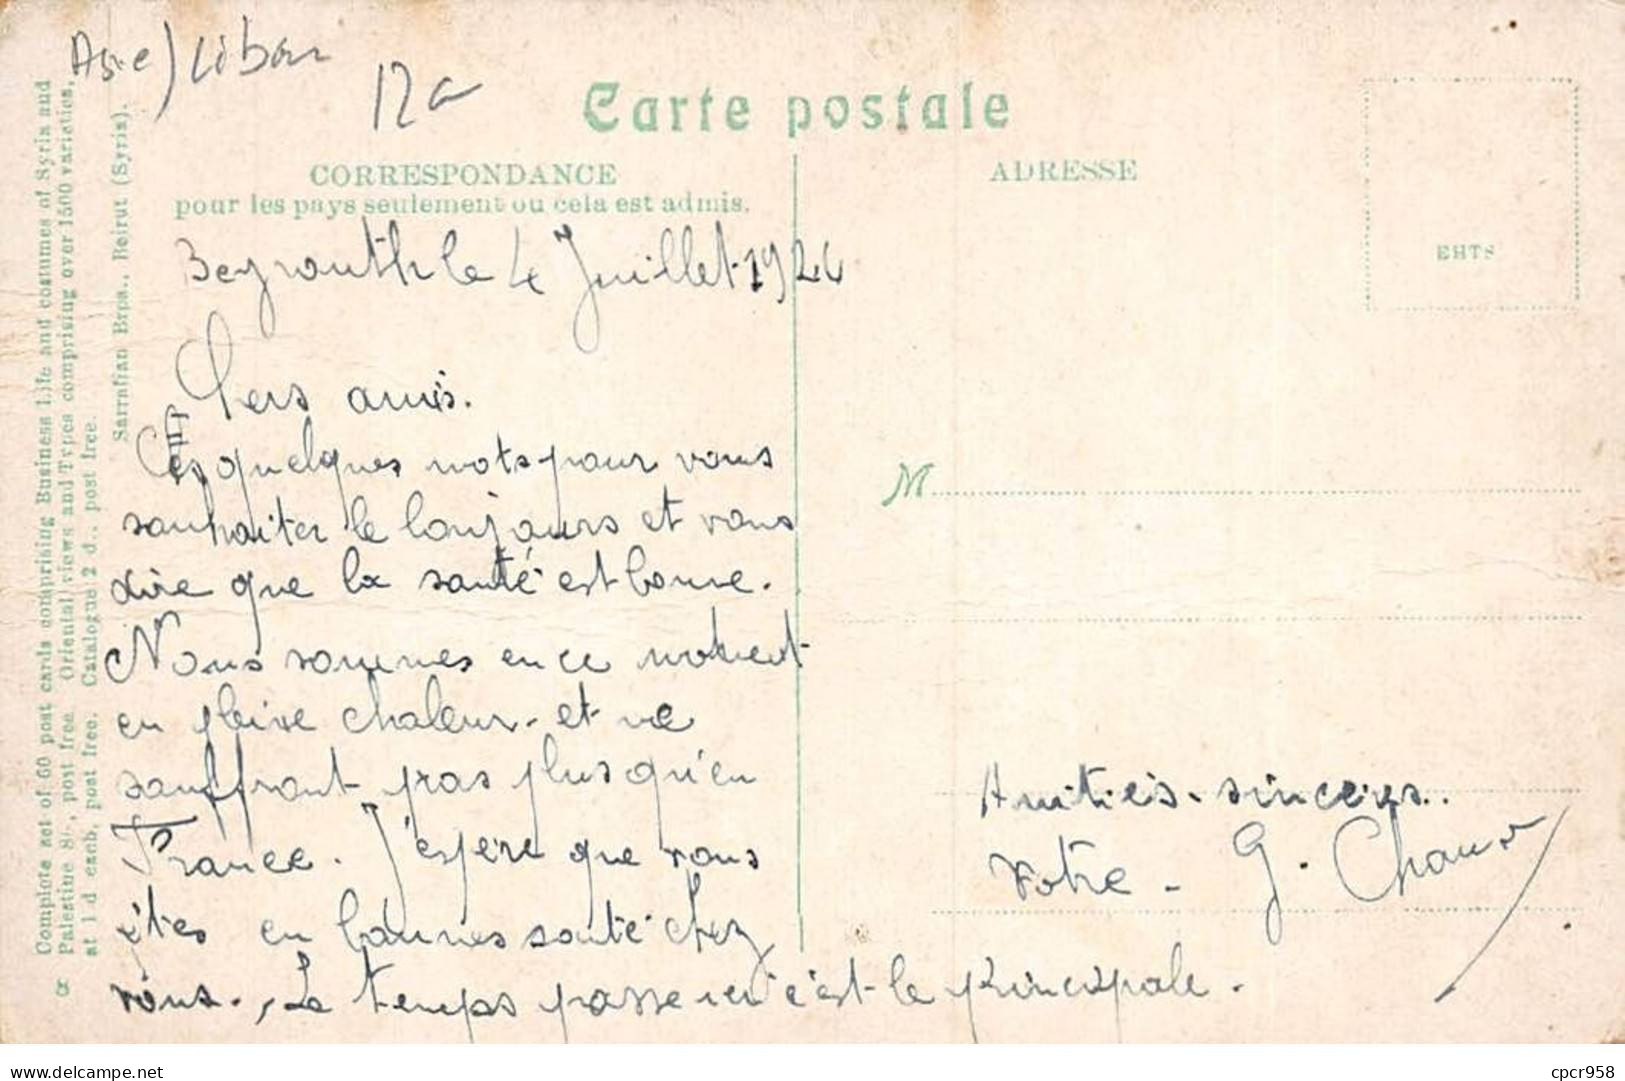 Asie) Liban
12a
Carte postale
CORRESPONDANCE
pour les pays seulement ou cela est admis.
ADRESSE
EHTS
Complete set of 60 post cards comprising Business Life and costumes of Syria and
Palestine 8/-, post free. Oriental views and Types comprising over 1500 varieties,
at 1 d each, post free. Catalogue 2 d., post free.
Sarrafian Bros., Beirut (Syria).
Beyrouth le 4 Juillet 1924
Chers amis.
Ces quelques mots pour vous
souhaiter le bonjours et vous
dire que la santé est bonne.
Nous sommes en ce moment
en pleine chaleur et ne
souffront pas plus qu'en
France. J'espère que vous
êtes en bonnes santé chez
vous., Le temps passe ici c'est le principale.
M
Amitiés sincères..
Votre - G.
www.delcampe.net
cpcr958